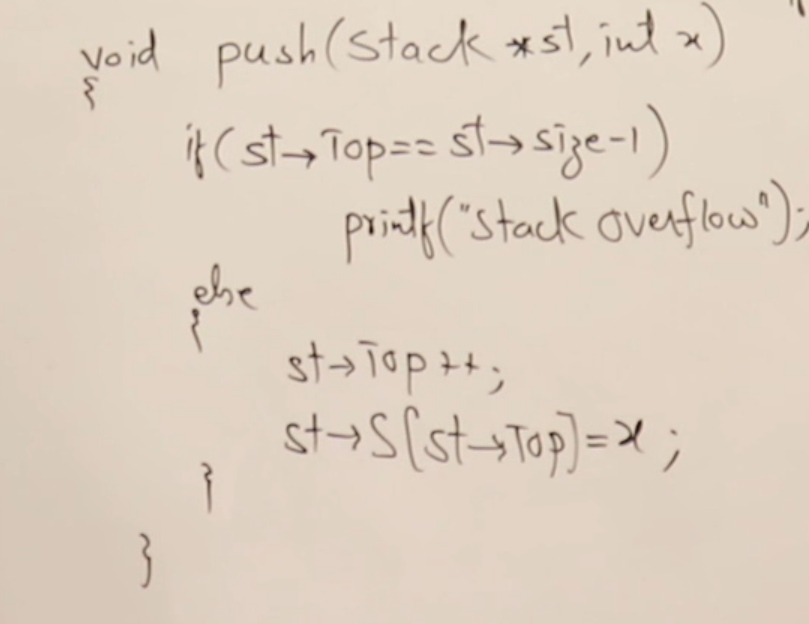 void push(Stack *st, int x)
{
if(st→Top==st→size-1)
printf("stack overflow");
else
{
st→Top++;
st→S[st→Top]=x;
}
}